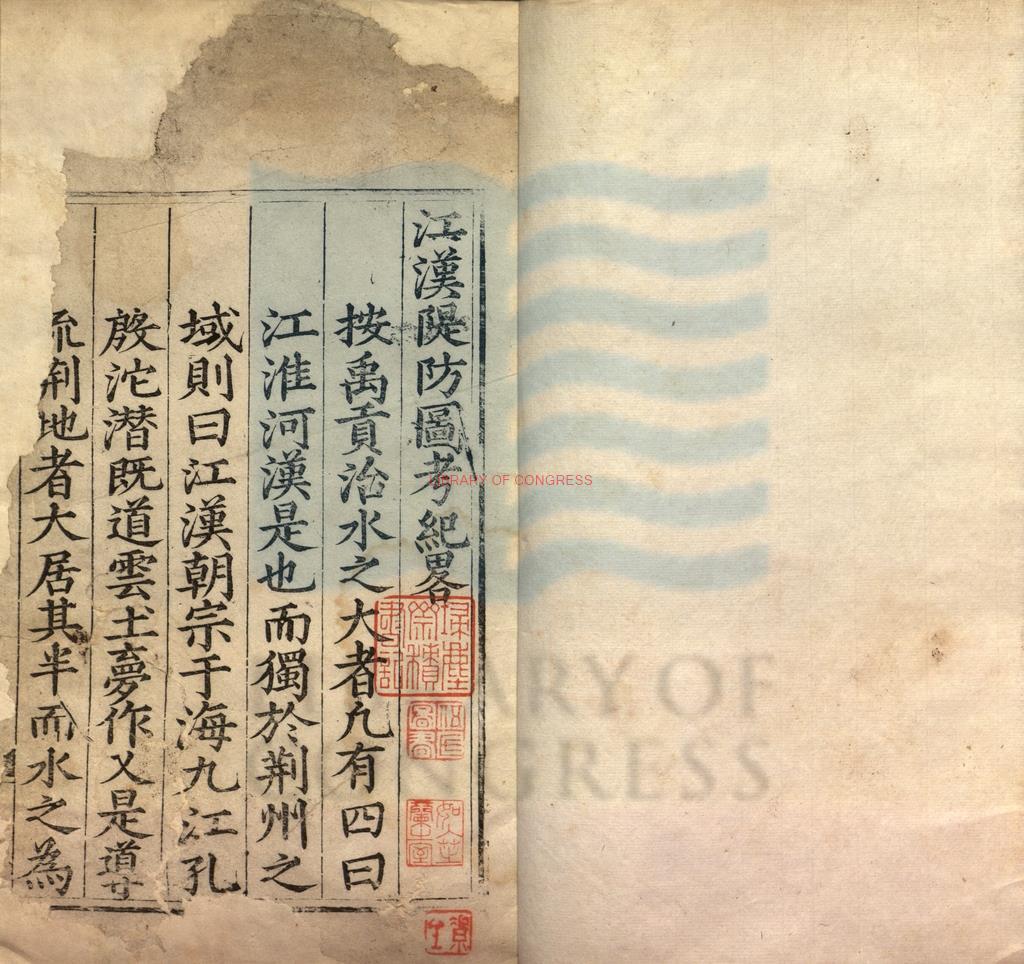 江漢隄防圖考紀畧
按禹貢治水之大者凡有四曰
江淮河漢是也而獨於荆州之
域則曰江漢朝宗于海九江孔
殷沱潜既道雲土夢作乂是導
流荆地者大居其半而水之為
如入芝蘭室
LIBRARY OF CONGRESS
LIBRARY OF
CONGRESS